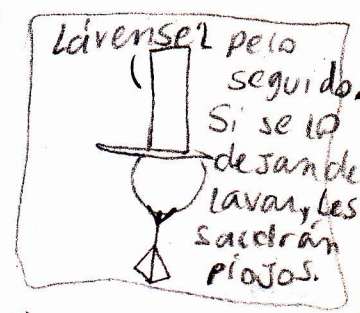 Lávensel pelo
seguido.
Si se lo
dejan de
lavar, les
saldrán
piojos.